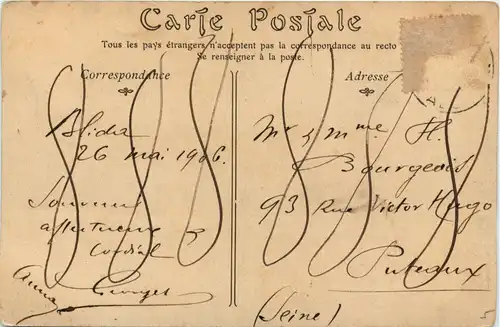 Carte Postale
Tous les pays étrangers n'acceptent pas la correspondance au recto
Se renseigner à la poste.
Correspondance
Adresse
Blida
26 mai 1906.
Souvenir
affectueux &
cordial
Georges
Mr & Mme H.
Bourgeois
93 Rue Victor Hugo
Puteaux
(Seine)